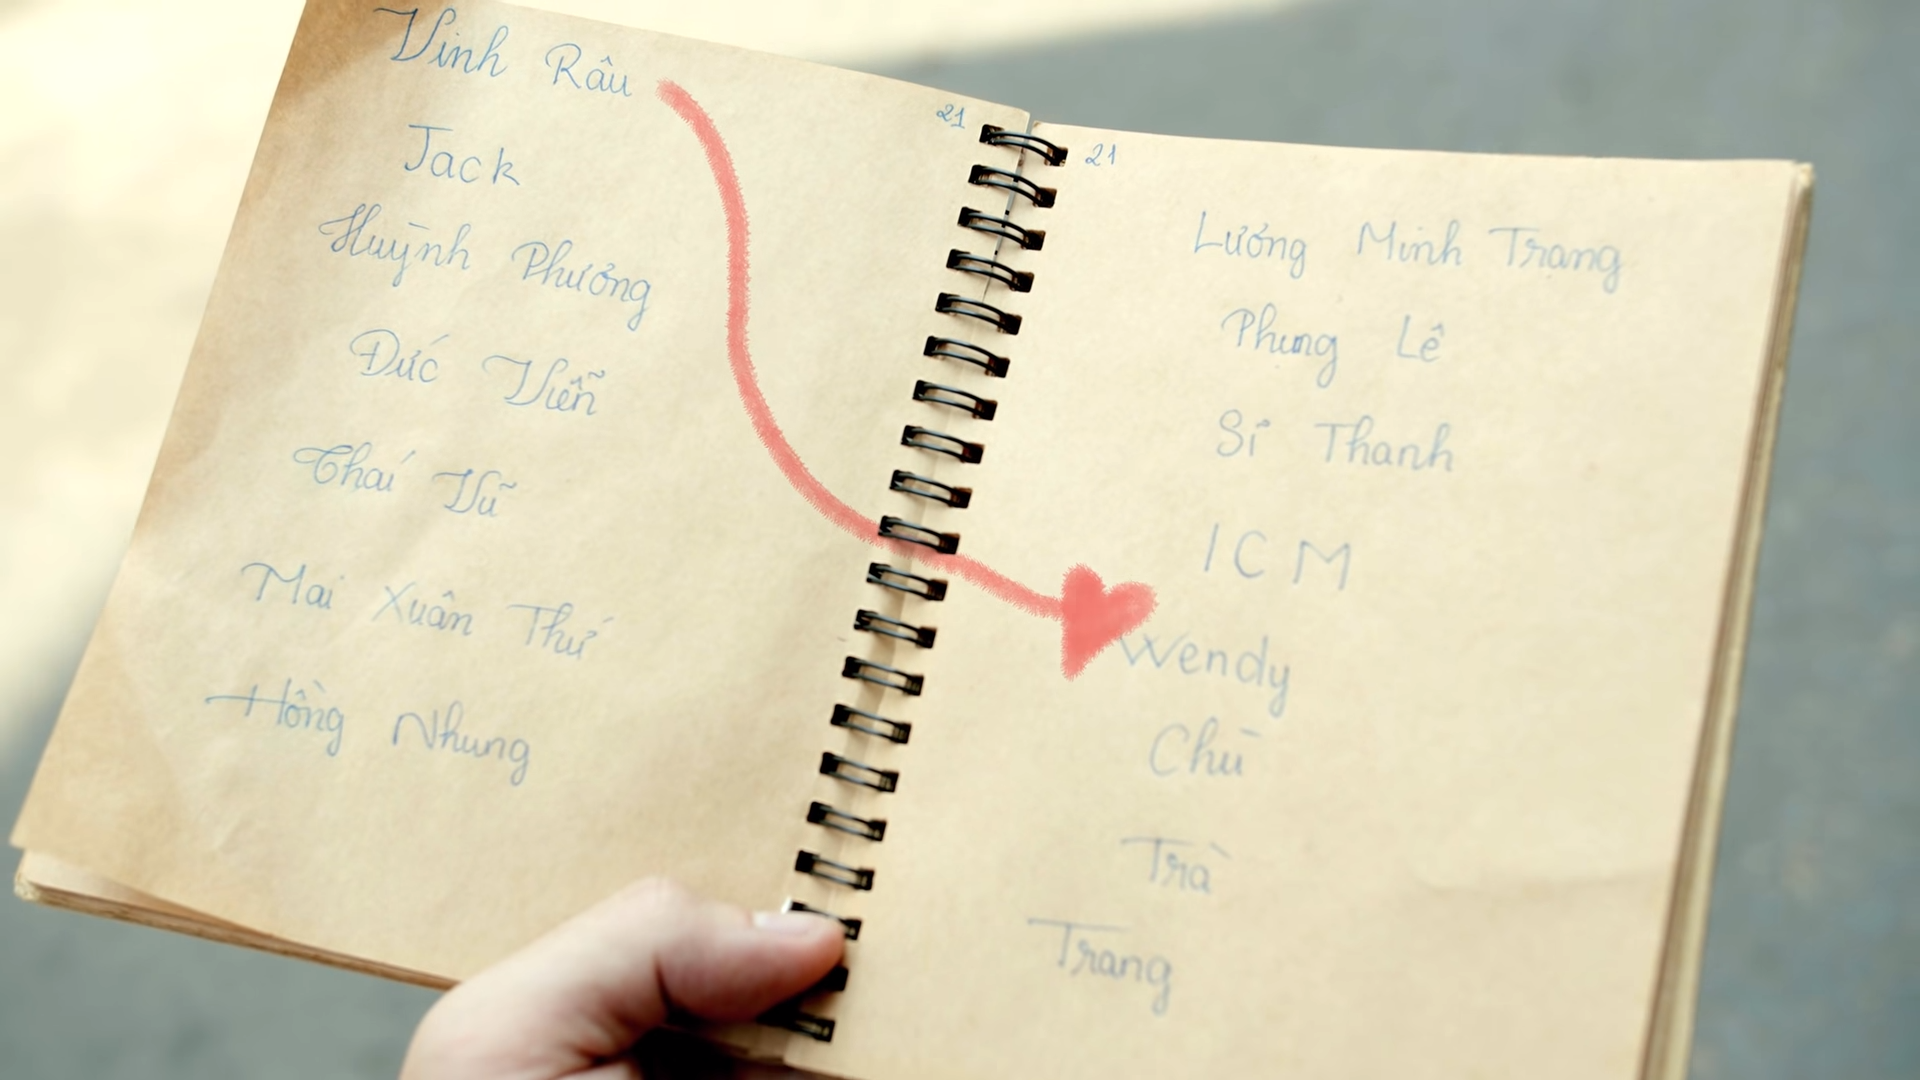 21
Vinh Râu
Jack
Huỳnh Phương
Đức Viễn
Thái Vũ
Mai Xuân Thứ
Hồng Nhung
21
Lương Minh Trang
Phung Lê
Sĩ Thanh
ICM
Wendy
Chù
Trà
Trang